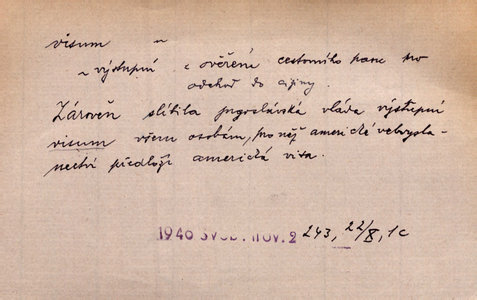 visum ~
~ výstupní = ověření cestovního pasu pro
odchod do ciziny.
Zároveň slíbila jugoslávská vláda výstupní
visum všem osobám, pro něž americké velvysla-
nectví předloží americká visa.
1946 SVOB. NOV. 2 243, 22/8, 1c